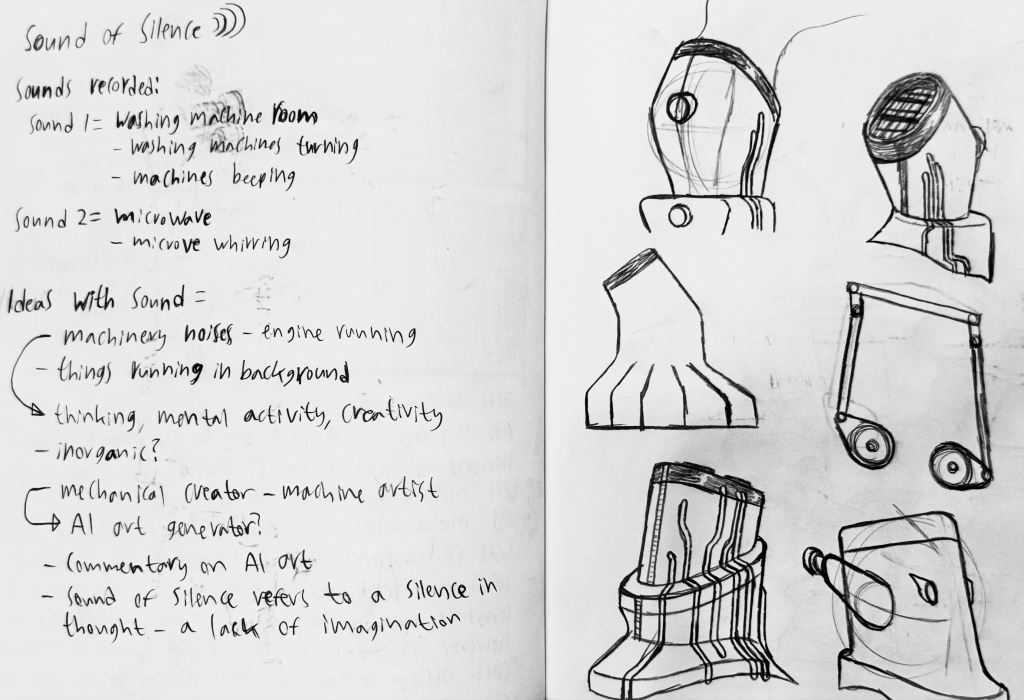 Sound of Silence
Sounds recorded:
Sound 1= Washing machine room
- washing machines turning
- machines beeping
Sound 2= microwave
- microve whirring
Ideas with Sound =
- machinery noises - engine running
- things running in background
thinking, mental activity, creativity
- inorganic?
- mechanical creator - machine artist
AI art generator?
- Commentary on AI art
- Sound of Silence refers to a silence in
thought - a lack of imagination